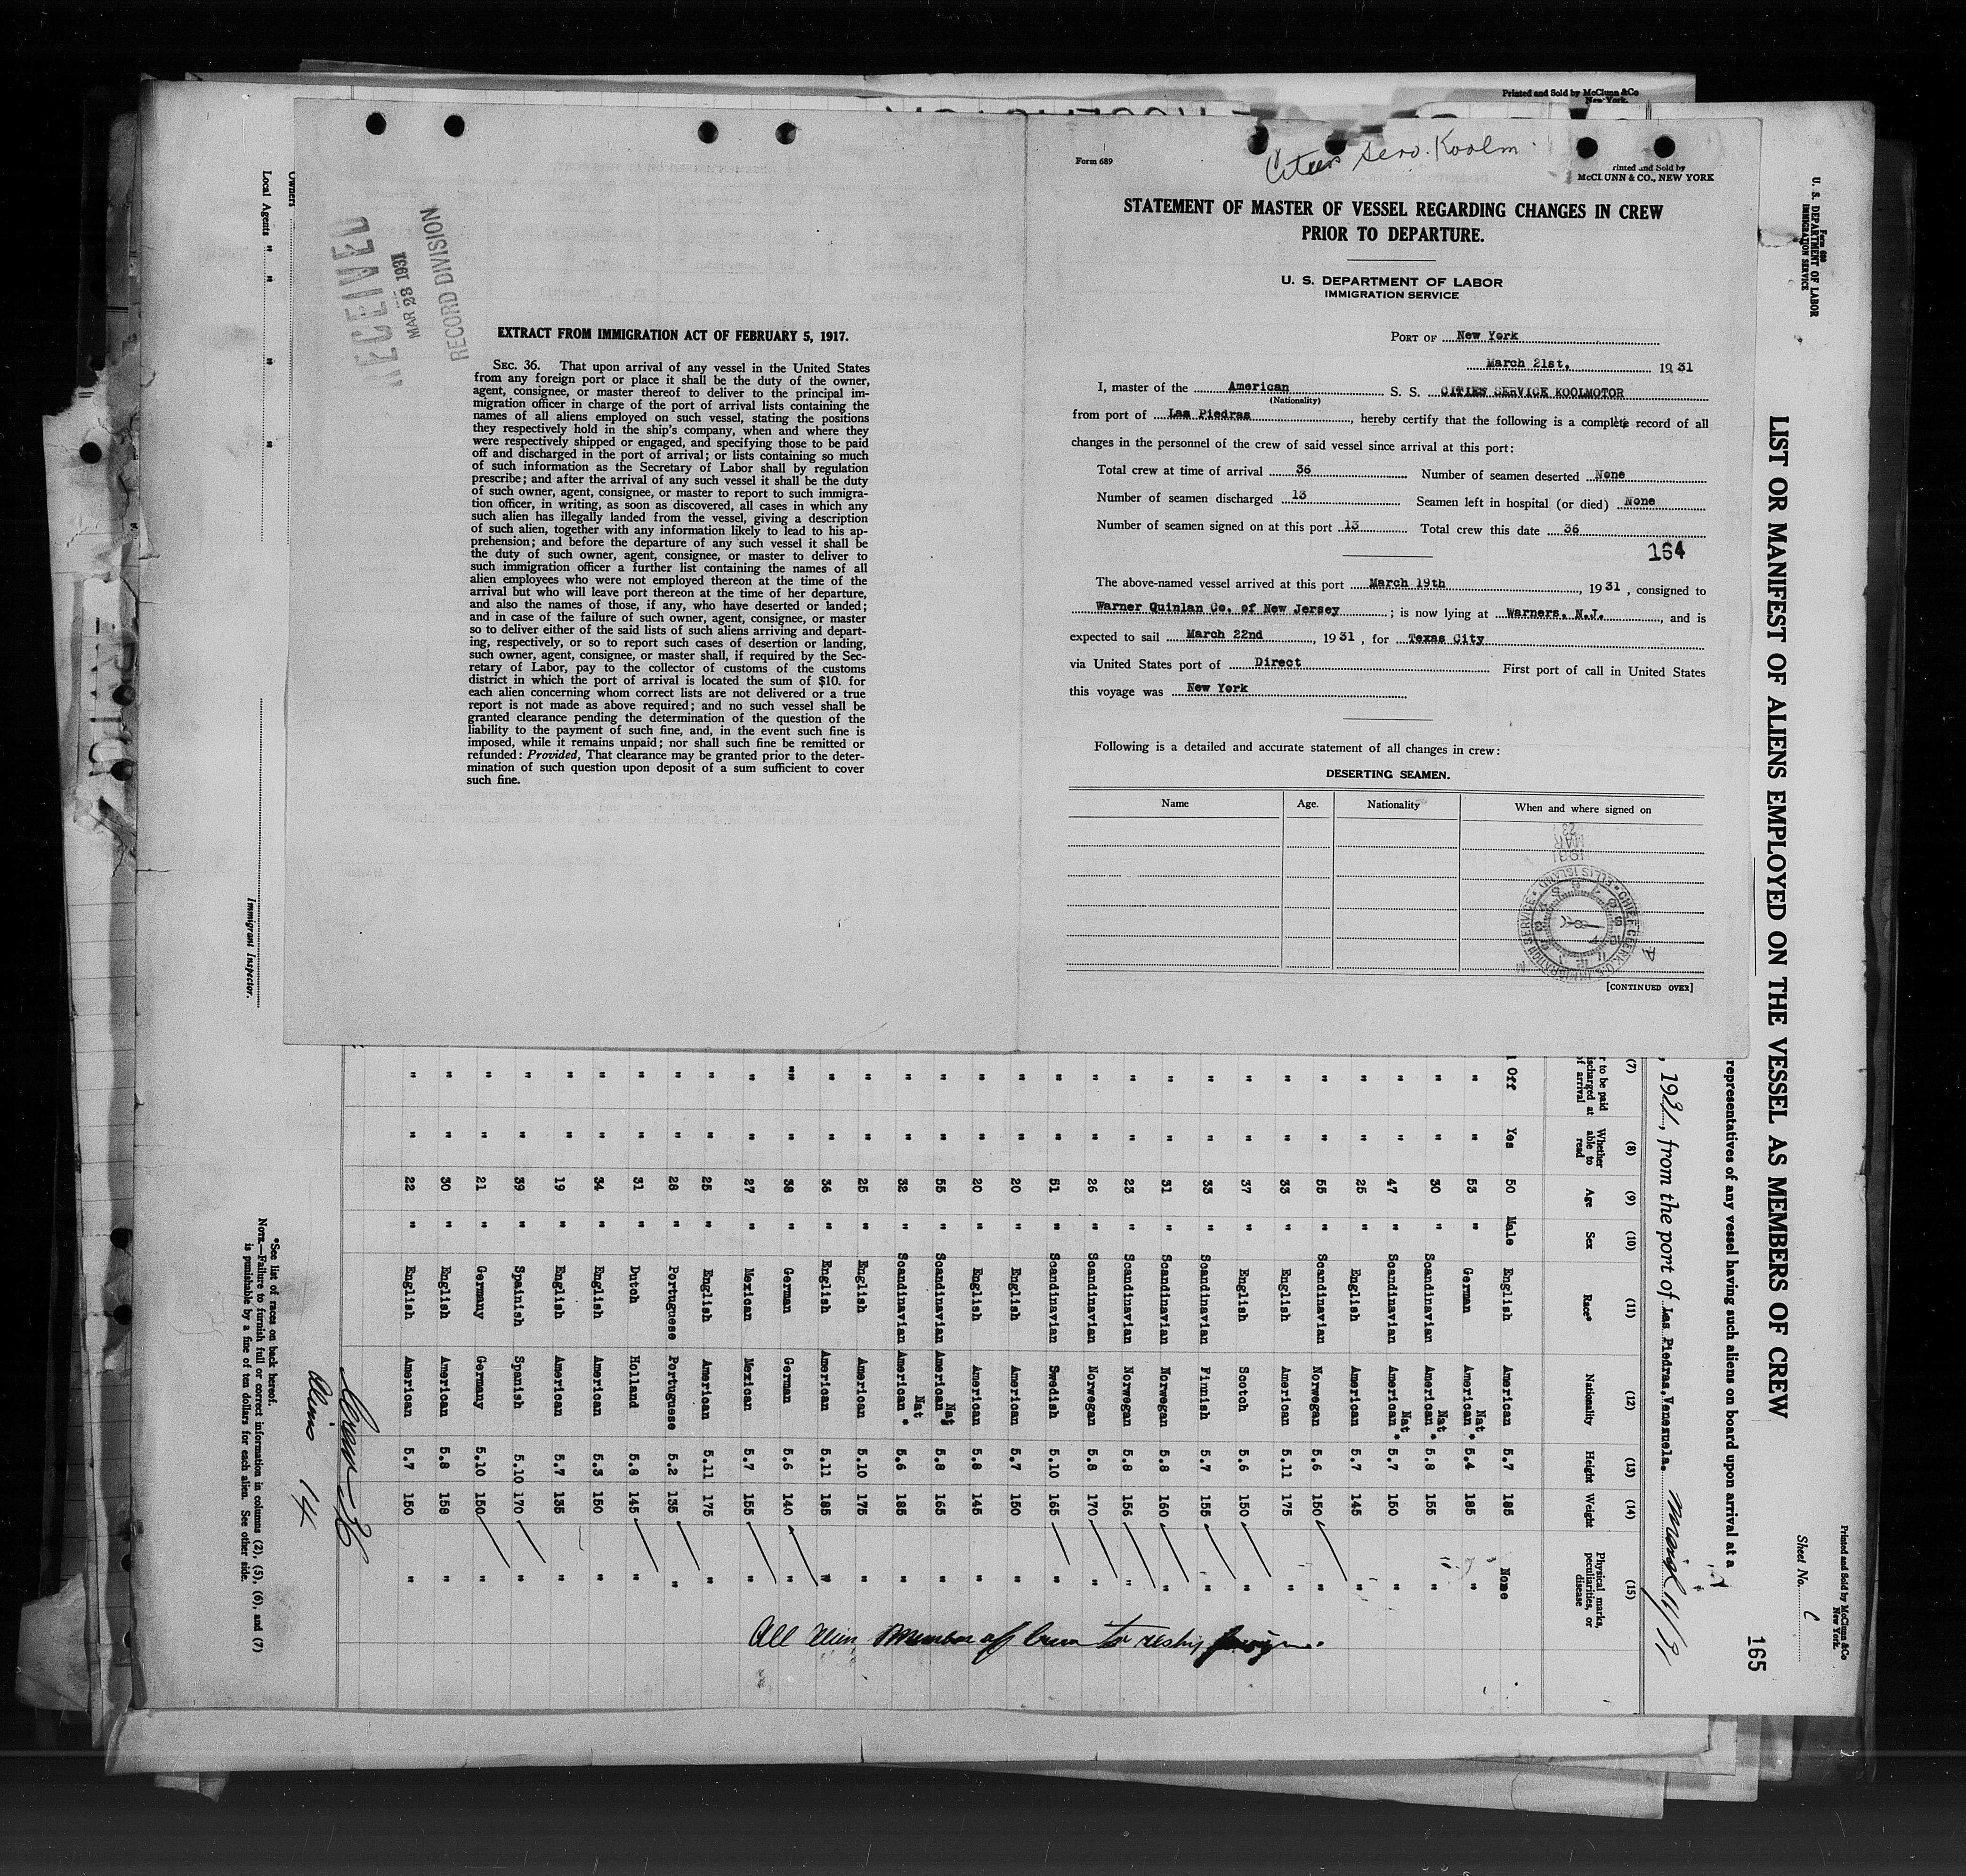 Form 689
Cities Serv. Koolm.
Printed and Sold by
McCLUNN & CO., NEW YORK
STATEMENT OF MASTER OF VESSEL REGARDING CHANGES IN CREW
PRIOR TO DEPARTURE.
U. S. DEPARTMENT OF LABOR
IMMIGRATION SERVICE
PORT OF New York
March 21st, 1931
I, master of the American S. S. CITIES SERVICE KOOLMOTOR
(Nationality)
from port of Las Piedras, hereby certify that the following is a complete record of all
changes in the personnel of the crew of said vessel since arrival at this port:
Total crew at time of arrival 36 Number of seamen deserted None
Number of seamen discharged 13 Seamen left in hospital (or died) None
Number of seamen signed on at this port 13 Total crew this date 36
164
The above-named vessel arrived at this port March 19th, 1931, consigned to
Warner Quinlan Co. of New Jersey; is now lying at Warners, N.J., and is
expected to sail March 22nd, 1931, for Texas City
via United States port of Direct First port of call in United States
this voyage was New York
Following is a detailed and accurate statement of all changes in crew:
DESERTING SEAMEN.
Name Age. Nationality When and where signed on
1931
MAR
23
CHIEF CLERK, U.S. IMMIGRATION SERVICE • ELLIS ISLAND •
[CONTINUED OVER]
RECEIVED
MAR 23 1931
RECORD DIVISION
EXTRACT FROM IMMIGRATION ACT OF FEBRUARY 5, 1917.
SEC. 36. That upon arrival of any vessel in the United States
from any foreign port or place it shall be the duty of the owner,
agent, consignee, or master thereof to deliver to the principal im-
migration officer in charge of the port of arrival lists containing the
names of all aliens employed on such vessel, stating the positions
they respectively hold in the ship's company, when and where they
were respectively shipped or engaged, and specifying those to be paid
off and discharged in the port of arrival; or lists containing so much
of such information as the Secretary of Labor shall by regulation
prescribe; and after the arrival of any such vessel it shall be the duty
of such owner, agent, consignee, or master to report to such immigra-
tion officer, in writing, as soon as discovered, all cases in which any
such alien has illegally landed from the vessel, giving a description
of such alien, together with any information likely to lead to his ap-
prehension; and before the departure of any such vessel it shall be
the duty of such owner, agent, consignee, or master to deliver to
such immigration officer a further list containing the names of all
alien employees who were not employed thereon at the time of the
arrival but who will leave port thereon at the time of her departure,
and also the names of those, if any, who have deserted or landed;
and in case of the failure of such owner, agent, consignee, or master
so to deliver either of the said lists of such aliens arriving and depart-
ing, respectively, or so to report such cases of desertion or landing,
such owner, agent, consignee, or master shall, if required by the Sec-
retary of Labor, pay to the collector of customs of the customs
district in which the port of arrival is located the sum of $10. for
each alien concerning whom correct lists are not delivered or a true
report is not made as above required; and no such vessel shall be
granted clearance pending the determination of the question of the
liability to the payment of such fine, and, in the event such fine is
imposed, while it remains unpaid; nor shall such fine be remitted or
refunded: Provided, That clearance may be granted prior to the deter-
mination of such question upon deposit of a sum sufficient to cover
such fine.
Printed and Sold by McClunn &Co
New York.
Form 680
U. S. DEPARTMENT OF LABOR
IMMIGRATION SERVICE
Printed and Sold by McClunn &Co
New York.
Sheet No. C
165
LIST OR MANIFEST OF ALIENS EMPLOYED ON THE VESSEL AS MEMBERS OF CREW
representatives of any vessel having such aliens on board upon arrival at a
, 1931, from the port of Las Piedras, Venezuela. March 19/31
(7) (8) (9) (10) (11) (12) (13) (14) (15)
r to be paid ischarged at of arrival Whether able to read Age Sex Race* Nationality Height Weight Physical marks, peculiarities, or disease
Off Yes 50 Male English American 5.7 185 None
" " 53 " German American Nat * 5.4 185 "
" " 30 " Scandinavian American Nat * 5.8 155 "
" " 47 " Scandinavian American Nat * 5.7 150 "
" " 25 " English American 5.7 145 "
" " 55 " Scandinavian Norwegan 5.6 150
" " 33 " English American 5.11 175 "
" " 37 " English Scotch 5.6 150 "
" " 33 " Scandinavian Finnish 5.7 155 "
" " 31 " Scandinavian Norwegan 5.8 160 "
" " 23 " Scandinavian Norwegan 5.8 156 "
" " 26 " Scandinavian Norwegan 5.8 170 "
" " 51 " Scandinavian Swedish 5.10 165 "
" " 20 " English American 5.7 150 "
" " 20 " English American 5.8 145 "
" " 55 " Scandinavian American Nat * 5.8 165 "
" " 32 " Scandinavian American Nat * 5.6 185 "
" " 25 " English American 5.10 175 "
" " 36 " English American 5.11 185 "
" " 38 " German German 5.6 140 "
" " 27 " Mexican Mexican 5.7 155 "
" " 25 " English American 5.11 175 "
" " 28 " Portuguese Portuguese 5.2 135 "
" " 31 " Dutch Holland 5.8 145 "
" " 34 " English American 5.3 150 "
" " 19 " English American 5.7 135 "
" " 39 " Spainish Spanish 5.10 170 "
" " 21 " Germany Germany 5.10 150 "
" " 30 " English American 5.8 158 "
" " 22 " English American 5.7 150 "
All Alien Member of Crew to reship foreign.
Crew 36
Aliens 14
*See list of races on back hereof.
NOTE.—Failure to furnish full or correct information in columns (2), (5), (6), and (7)
is punishable by a fine of ten dollars for each alien. See other side.
Owners
Local Agents " "
Immigrant Inspector.